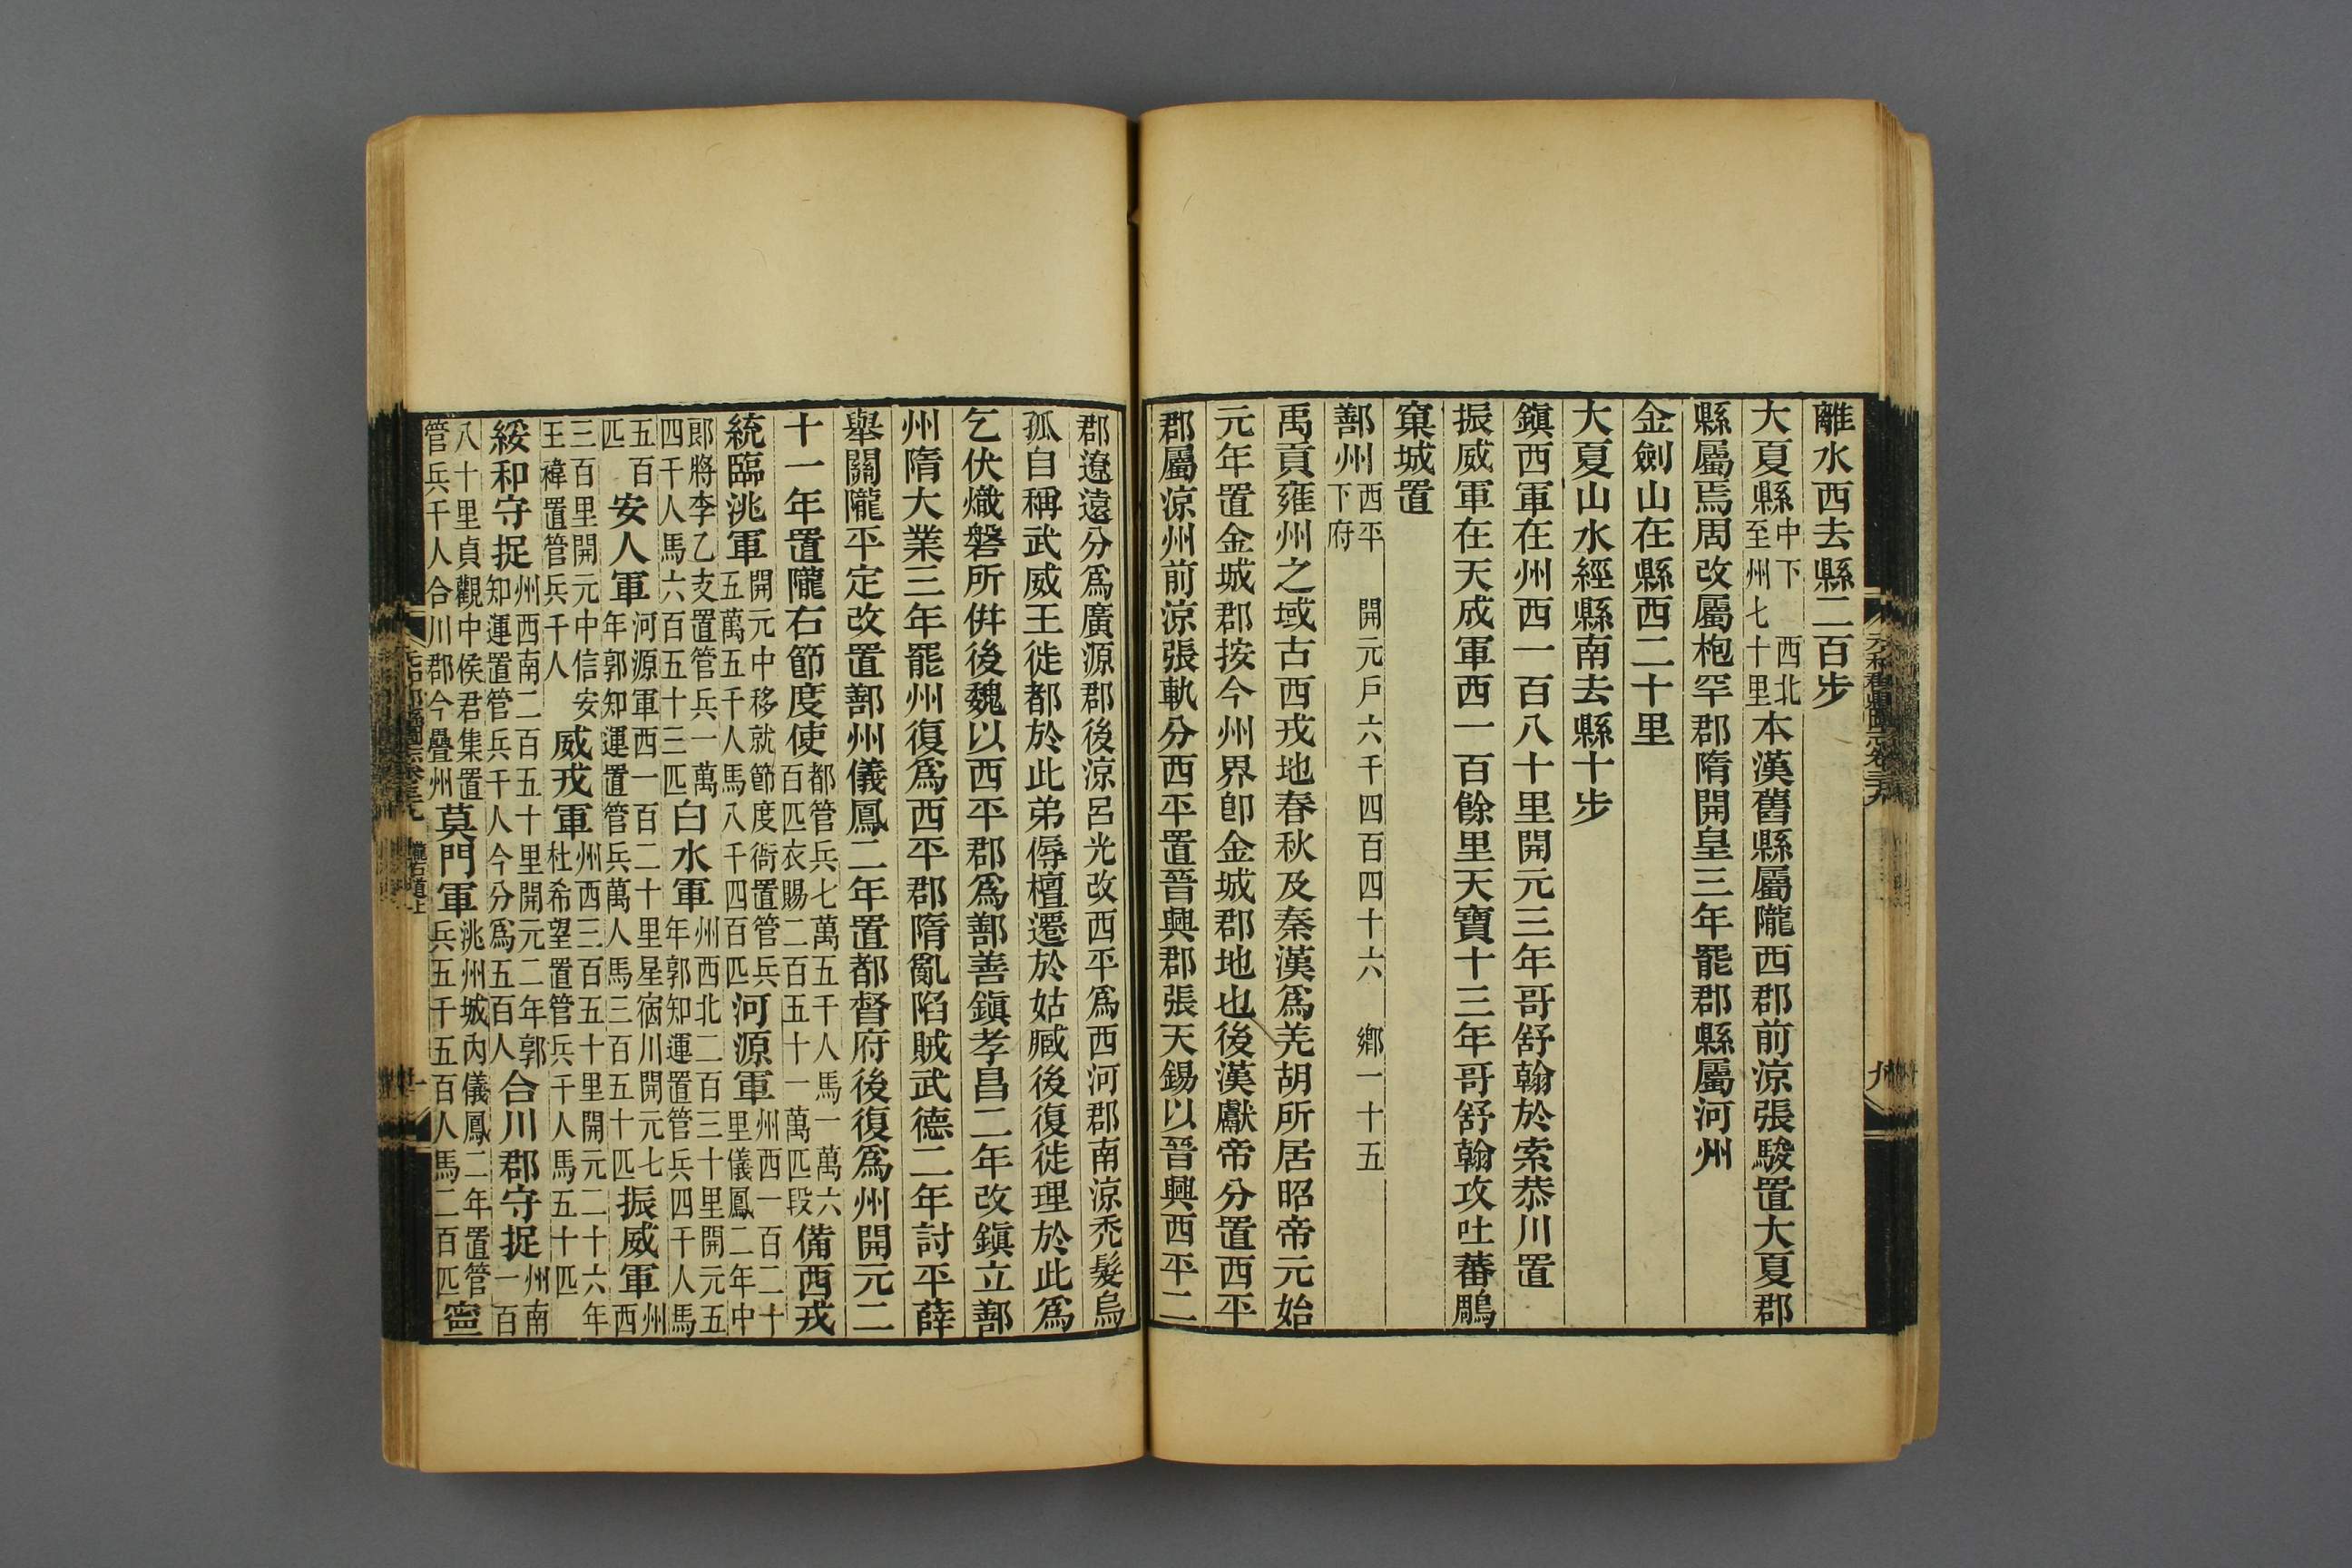 離水西去縣二百步
大夏縣中下 西北至州七十里本漢舊縣屬隴西郡前涼張駿置大夏郡
縣屬焉周改屬枹罕郡隋開皇三年罷郡縣屬河州
金劍山在縣西二十里
大夏山水經縣南去縣十步
鎭西軍在州西一百八十里開元三年哥舒翰於索恭川置
振威軍在天成軍西一百餘里天寶十三年哥舒翰攻吐蕃鵰
窠城置
鄯州西平下府 開元戸六千四百四十六 鄕一十五
禹貢雍州之域古西戎地春秋及秦漢爲羌胡所居昭帝元始
元年置金城郡按今州界卽金城郡地也後漢獻帝分置西平
郡屬涼州前涼張軌分西平置晉興郡張天錫以晉興西平二
郡遼遠分爲廣源郡後涼呂光改西平爲西河郡南涼禿髮烏
孤自稱武威王徙都於此弟傉檀遷於姑臧後復徙理於此爲
乞伏熾磐所倂後魏以西平郡爲鄯善鎭孝昌二年改鎭立鄯
州隋大業三年罷州復爲西平郡隋亂陷賊武德二年討平薛
舉關隴平定改置鄯州儀鳳二年置都督府後復爲州開元二
十一年置隴右節度使都管兵七萬五千人馬一萬六百匹衣賜二百五十一萬匹段備西戎
統臨洮軍開元中移就節度衙置管兵五萬五千人馬八千四百匹河源軍州西一百二十里儀鳳二年中
郎將李乙支置管兵一萬四千人馬六百五十三匹白水軍州西北二百三十里開元五年郭知運置管兵四千人馬
五百匹安人軍河源軍西一百二十里星宿川開元七年郭知運置管兵萬人馬三百五十匹振威軍州西
三百里開元中信安王禕置管兵千人威戎軍州西三百五十里開元二十六年杜希望置管兵千人馬五十匹
綏和守捉州西南二百五十里開元二年郭知運置管兵千人今分爲五百人合川郡守捉州南一百
八十里貞觀中侯君集置管兵千人合川郡今疊州莫門軍洮州城內儀鳳二年置管兵五千五百人馬二百匹寧